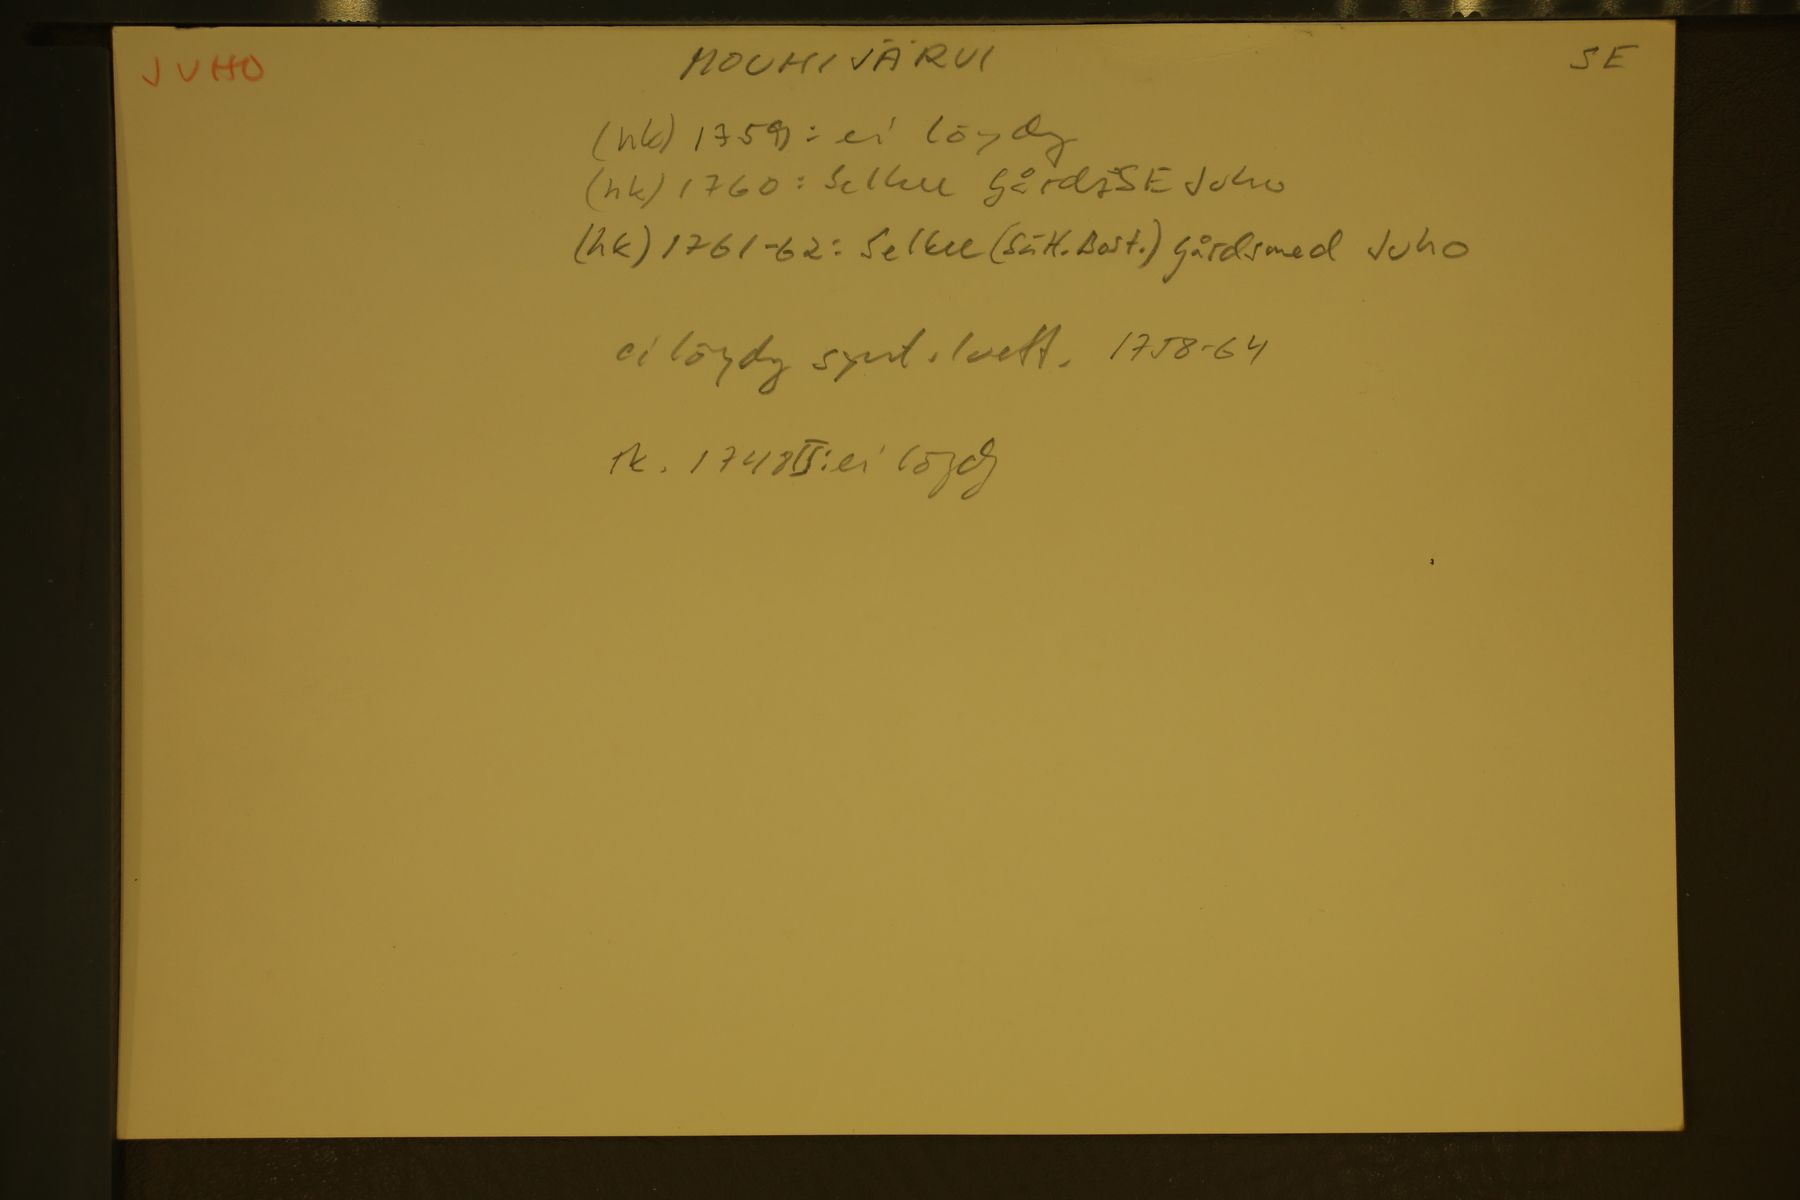 JUHO MOUHIJÄRVI SE
(hk) 1759: ei löydy
(hk) 1760: Selkee GårdsSE Juho
(hk) 1761-62: Selkee (Sätt. Bost.) gårdsmed Juho
ei löydy synt. luett. 1758-64
rk. 1748 II: ei löydy